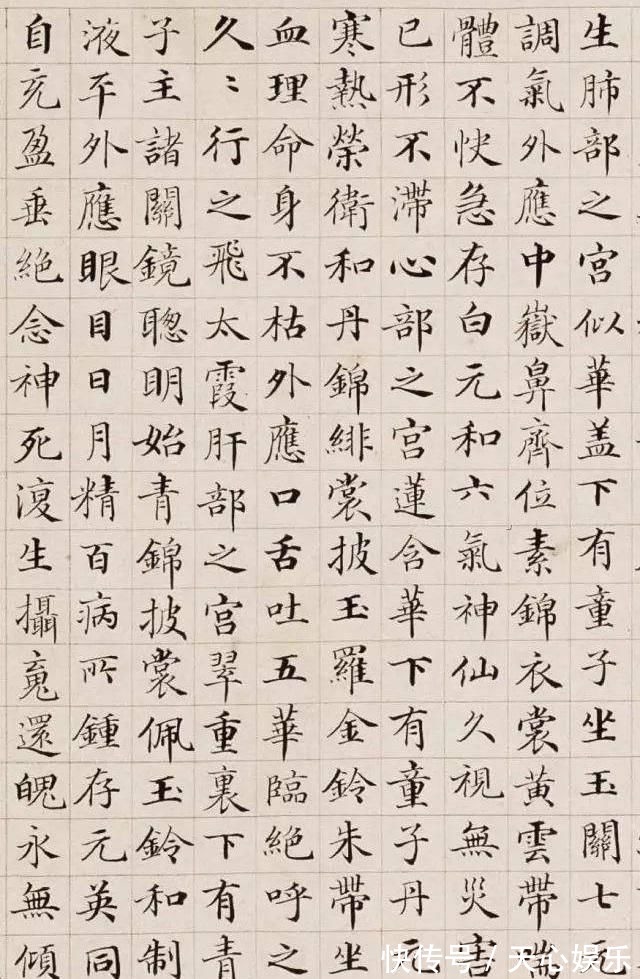 生肺部之宮似華盖下有童子坐玉關七
調氣外應中嶽鼻齊位素錦衣裳黃雲帶
體不快急存白元和六氣神仙久視無災
已形不滯心部之宮蓮含華下有童子丹
寒熱榮衛和丹錦緋裳披玉羅金鈴朱帶坐
血理命身不枯外應口舌吐五華臨絕呼之
久〻行之飛太霞肝部之宮翠重裏下有青
子主諸關鏡聦明始青錦披裳佩玉鈴和制
液平外應眼目日月精百病所鍾存元英同
自充盈垂絕念神死復生攝䰟還魄永無傾
快传号 / 天心娱乐